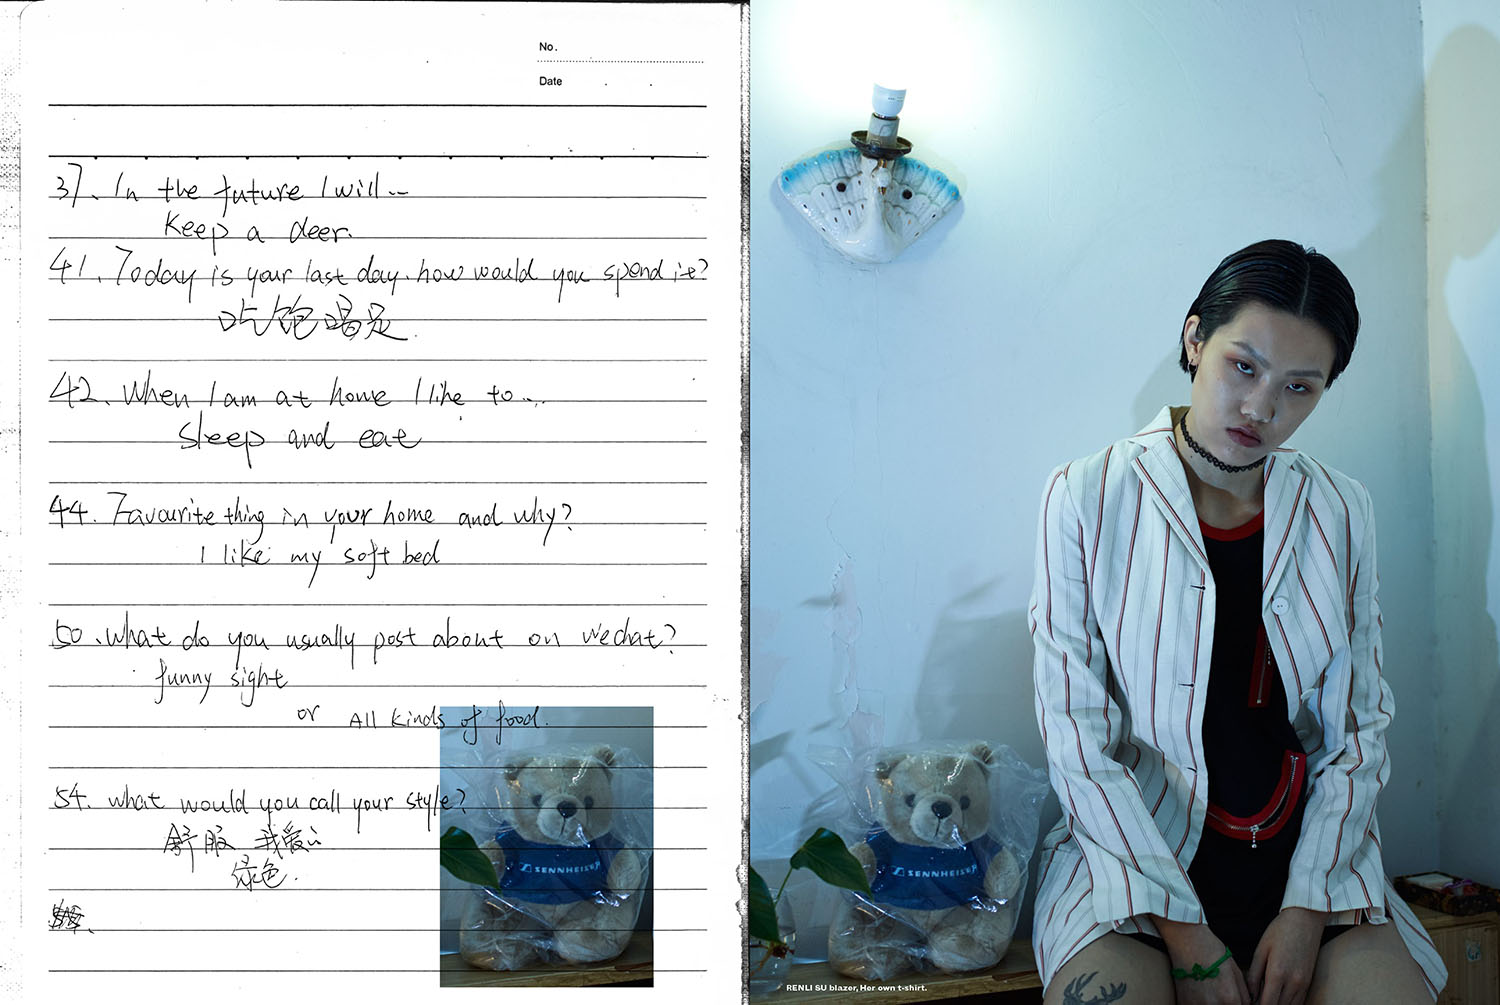 No.
Date
37. In the future I will...
Keep a deer.
41. Today is your last day. how would you spend it?
吃饱喝足.
42. When I am at home I like to....
Sleep and eat
44. Favourite thing in your home and why?
I like my soft bed
50. What do you usually post about on wechat?
funny sight
or All kinds of food.
54. what would you call your style?
舒服 我爱
绿色.
SENNHEISER
SENNHEISER
RENLI SU blazer, Her own t-shirt.